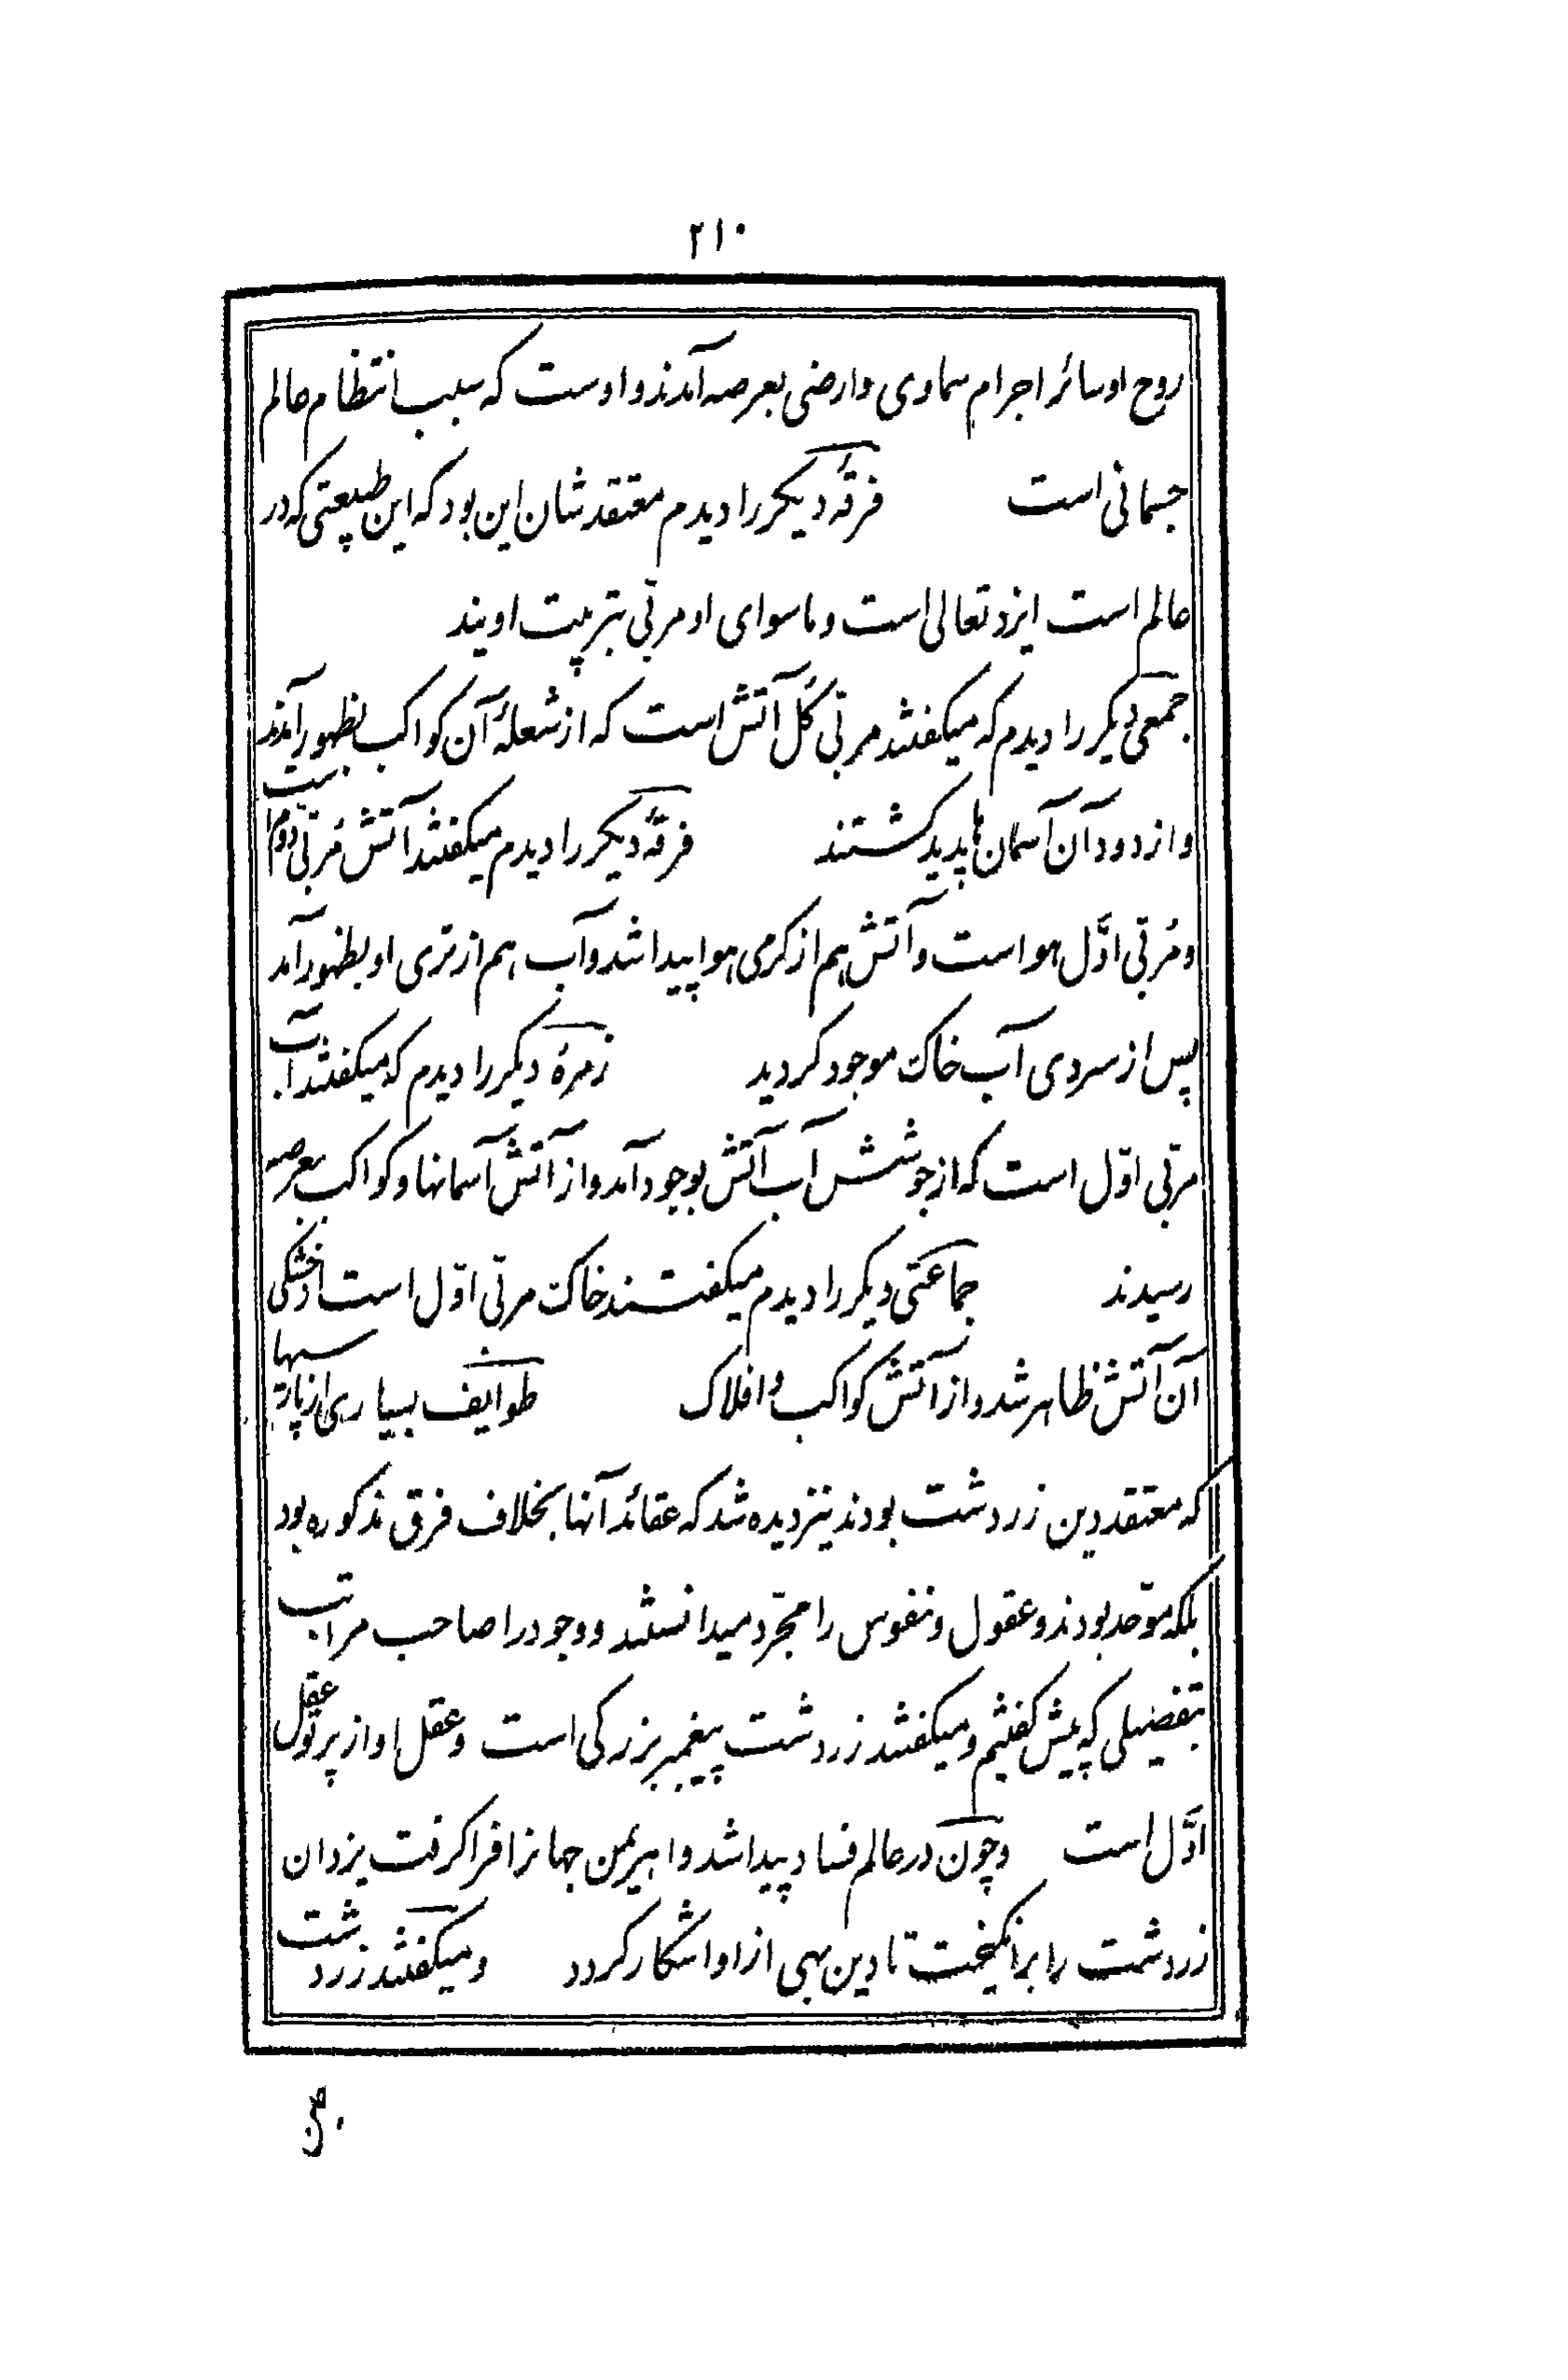 ۲۱۰
روح او سائر اجرام سماوی و ارضی بعرصه آمدند و اوست که سبب انتظام عالم
جسمانی است فرقهٔ دیکر را دیدم معتقدشان این بود که این طبیعتی که در
عالم است ایزد تعالی است و ماسوای او مربّی بتربیت اویند
جمعی دیکر را دیدم که میکفتند مربّی کُل آتش است که از شعلهٔ آن کواکب بظهور آمدند
و از دود آن آسمان‌ها پدید کشتند فرقهٔ دیکر را دیدم میکفتند آتش مُربّی دوم است
و مُربّی اوَّل هوا است و آتش هم از کرمی هوا پیدا شد و آب هم از تری او بظهور آمد
پس از سردی آب خاک موجود کردید زمرهٔ دیکر را دیدم که میکفتند آب
مربّی اوّل است که از جوشش آب آتش بوجود آمد و از آتش آسمانها و کواکب بعرصه
رسیدند جماعتی دیکر را دیدم میکفتند خاک مربّی اوّل است از خشکی
آن آتش ظاهر شد و از آتش کواکب و افلاک طوایف بسیاری از پارسیها
که معتقد دین زردشت بودند نیز دیده شد که عقائد آنها بخلاف فرق مذکوره بود
بلکه موّحد بودند و عقول و نفوس را مجرّد میدانستند و وجود را صاحب مراتب
بتفضیلی که پیش کفتیم و میکفتند زردشت پیغمبر بزرکی است و عقل او از پرتو عقل
اوَّل است و چون در عالم فساد پیدا شد و اهریمن جهانرا فرا کرفت یزدان
زردشت را برانکیخت تا دین بهی از او آشکار کردد و میکفتند زردشت